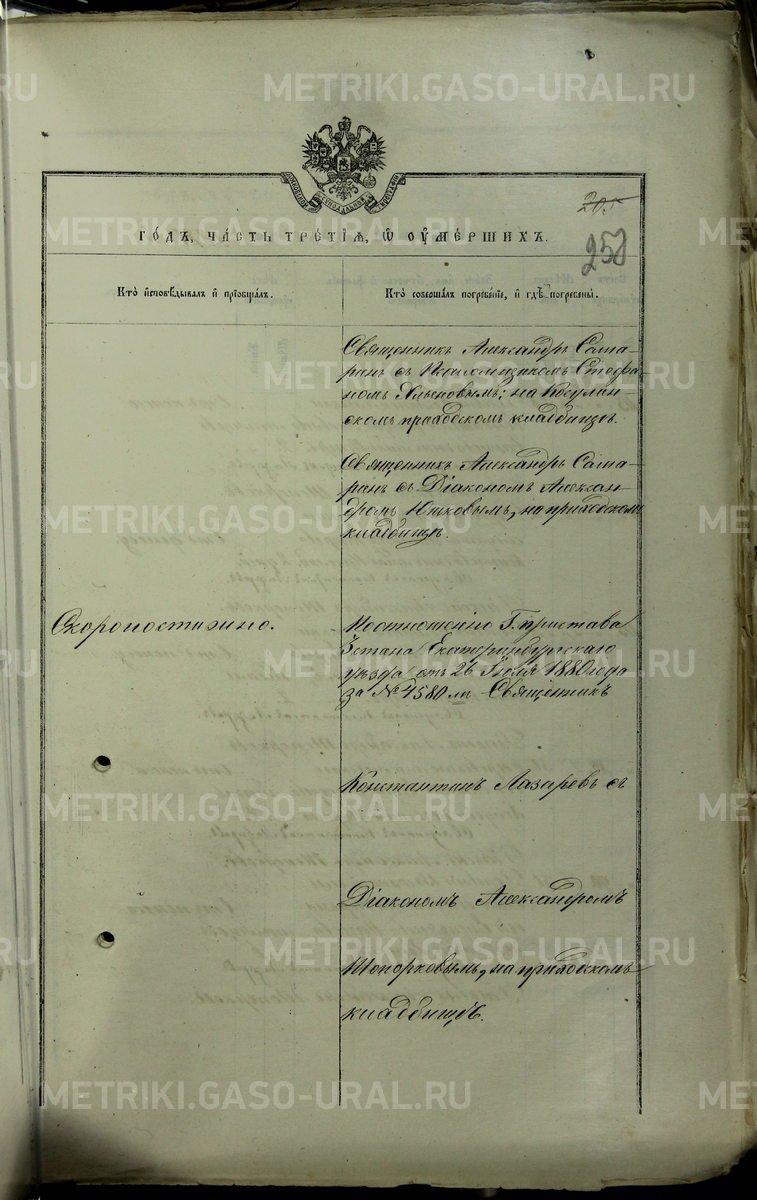 20.
258
годъ, часть третїѧ, ѡ оумершихъ.
Кто исповѣдывалъ и прїобщалъ.
Кто совершалъ погребенїе, и гдѣ погребены.
Священникъ Александръ Сата-
ринъ съ Псаломщикомъ Стефа-
номъ на Косулин-
скомъ приходскомъ кладбищѣ.
Священникъ Александръ Сата-
ринъ съ Діакономъ Алексан-
дромъ на приходскомъ
кладбищѣ.
Скоропостижно.
По отношенію Г. пристава
3 стана Екатеринбургскаго
уѣзда отъ 26 Іюля 1880 года
за № 4580 м Священникъ
Константинъ Лазаревъ съ
Діакономъ Александромъ
Топорковымъ, на приходскомъ
кладбищѣ.
METRIKI.GASO-URAL.RU